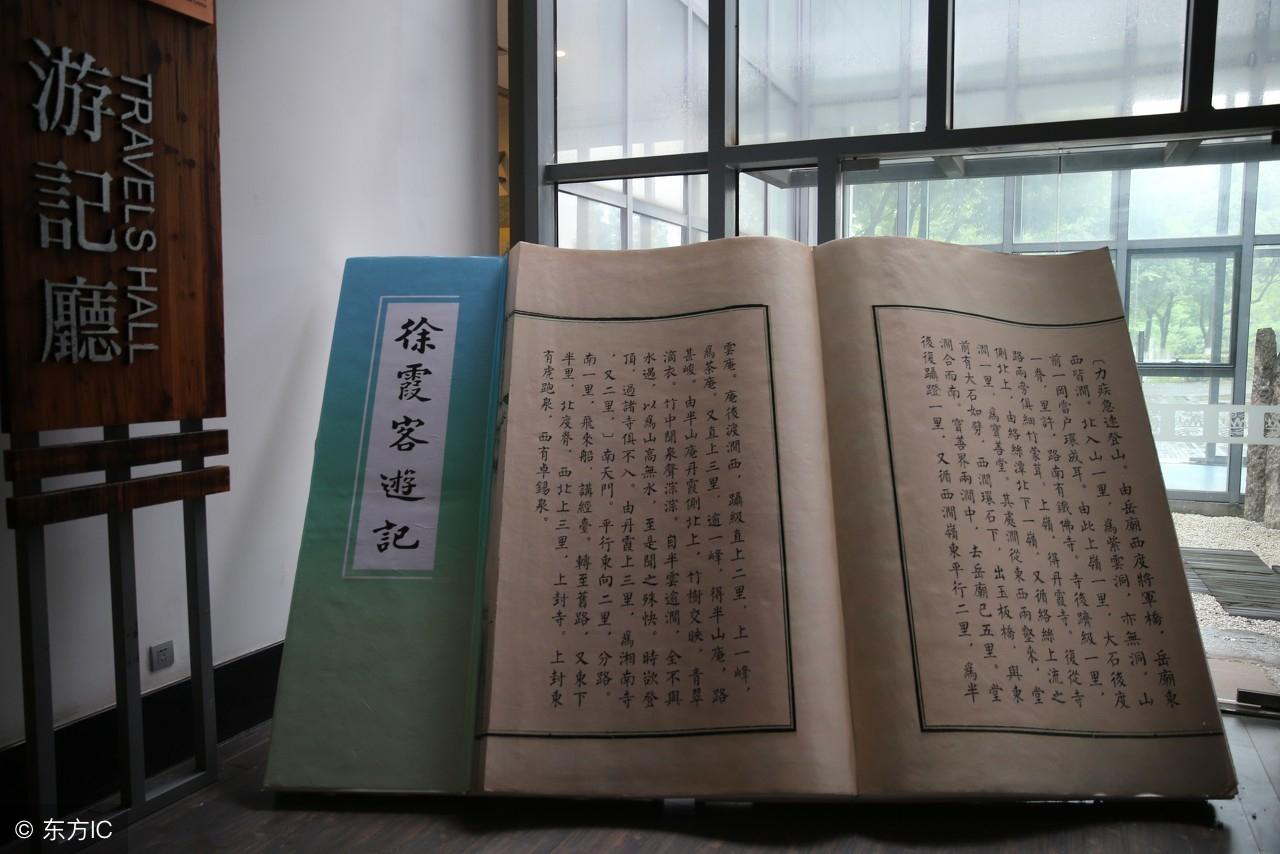 游記廳
TRAVELS HALL
徐霞客遊記
〔力疾急速登山。由岳廟西度將軍橋，岳廟東
西皆澗。北入山一里，爲紫雲洞，亦無洞，山
前一岡當户環成耳。由此上嶺一里，大石後度
一脊，里許，路南有鐵佛寺。寺後躋級一里，
路兩旁俱細竹蒙茸。上嶺，得丹霞寺。復從寺
側北上，由絡絲潭北下一嶺，又循絡絲上流之
澗一里，爲寶善堂。其處澗從東西兩壑來，堂
前有大石如劈，西澗環石下，出玉板橋，與東
澗合而南。寶善界兩澗中，去岳廟已五里。堂
後復躡蹬一里，又循西澗嶺東平行二里，爲半
雲庵。庵後渡澗西，躡級直上二里，上一峰，
爲茶庵。又直上三里，逾一峰，得半山庵，路
甚峻。由半山庵丹霞側北上，竹樹交映，青翠
滴衣。竹中聞泉聲淙淙。自半雲逾澗，全不與
水遇，以爲山高無水，至是聞之殊快。時欲登
頂，過諸寺俱不入。由丹霞上三里，爲湘南寺
，又二里，〕南天門。平行東向二里，分路。
南一里，飛來船，講經臺。轉至舊路，又東下
半里，北度脊，西北上三里，上封寺。上封東
有虎跑泉，西有卓錫泉。
© 东方IC